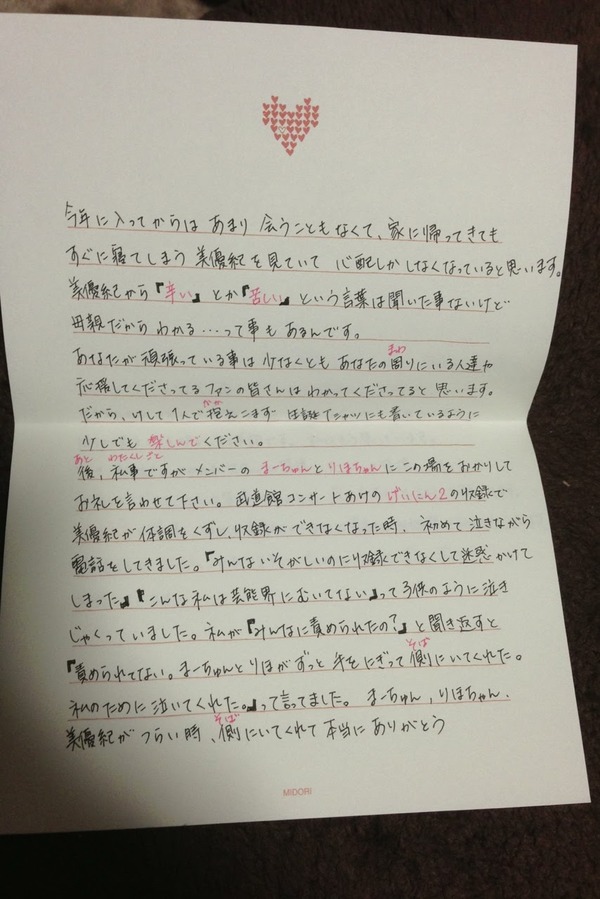 今年に入ってからは あまり 会うこともなくて、家に帰ってきても
すぐに寝てしまう 美優紀を見ていて 心配しか しなくなっていると思います。
美優紀から『辛い』とか『苦しい』という言葉は聞いた事ないけど
母親だから わかる…って事も あるんです。
あなたが 頑張っている事は 少なくとも あなたの周りにいる人達や
まわ
応援してくださってる ファンの皆さんは わかってくださってると 思います。
だから、けして 1人で抱えこまず 生誕Tシャツにも書いているように
かか
少しでも 楽しんでください。
あと わたくしごと
後、私事ですが メンバーの まーちゅんと りほちゃんに この場を おかりして
お礼を言わせて下さい。 武道館コンサートあけの げいにん2の収録で
美優紀が体調をくずし、収録ができなくなった時、 初めて 泣きながら
電話をしてきました。『みんないそがしいのに収録できなくして迷惑かけて
しまった』『こんな私は芸能界にむいてない』って子供のように泣き
じゃくっていました。私が『みんなに責められたの?』と聞き返すと
『責められてない。まーちゅんとりほがずっと 手をにぎって 側にいてくれた。
そば
私のために泣いてくれた。』って言ってました。 まーちゅん, りほちゃん.
美優紀が つらい時、側にいてくれて 本当に ありがとう
そば
MIDORI